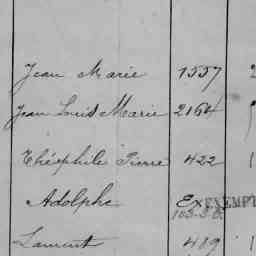 Jean Marie 1557 2
Jean Louis Marie 2164
Théophile Pierre 422 1
Adolphe Ex EXEMPT
Laurent 419 1